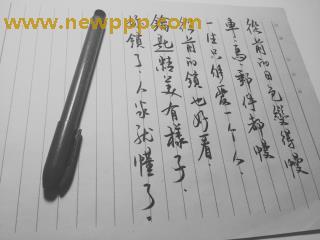 www.newppp.com
從前的日色變得慢
車.馬.郵件都慢
一生只够愛一个人.
從前的鎖也好看.
鑰匙精美有樣子.
你鎖了.人家就懂了.